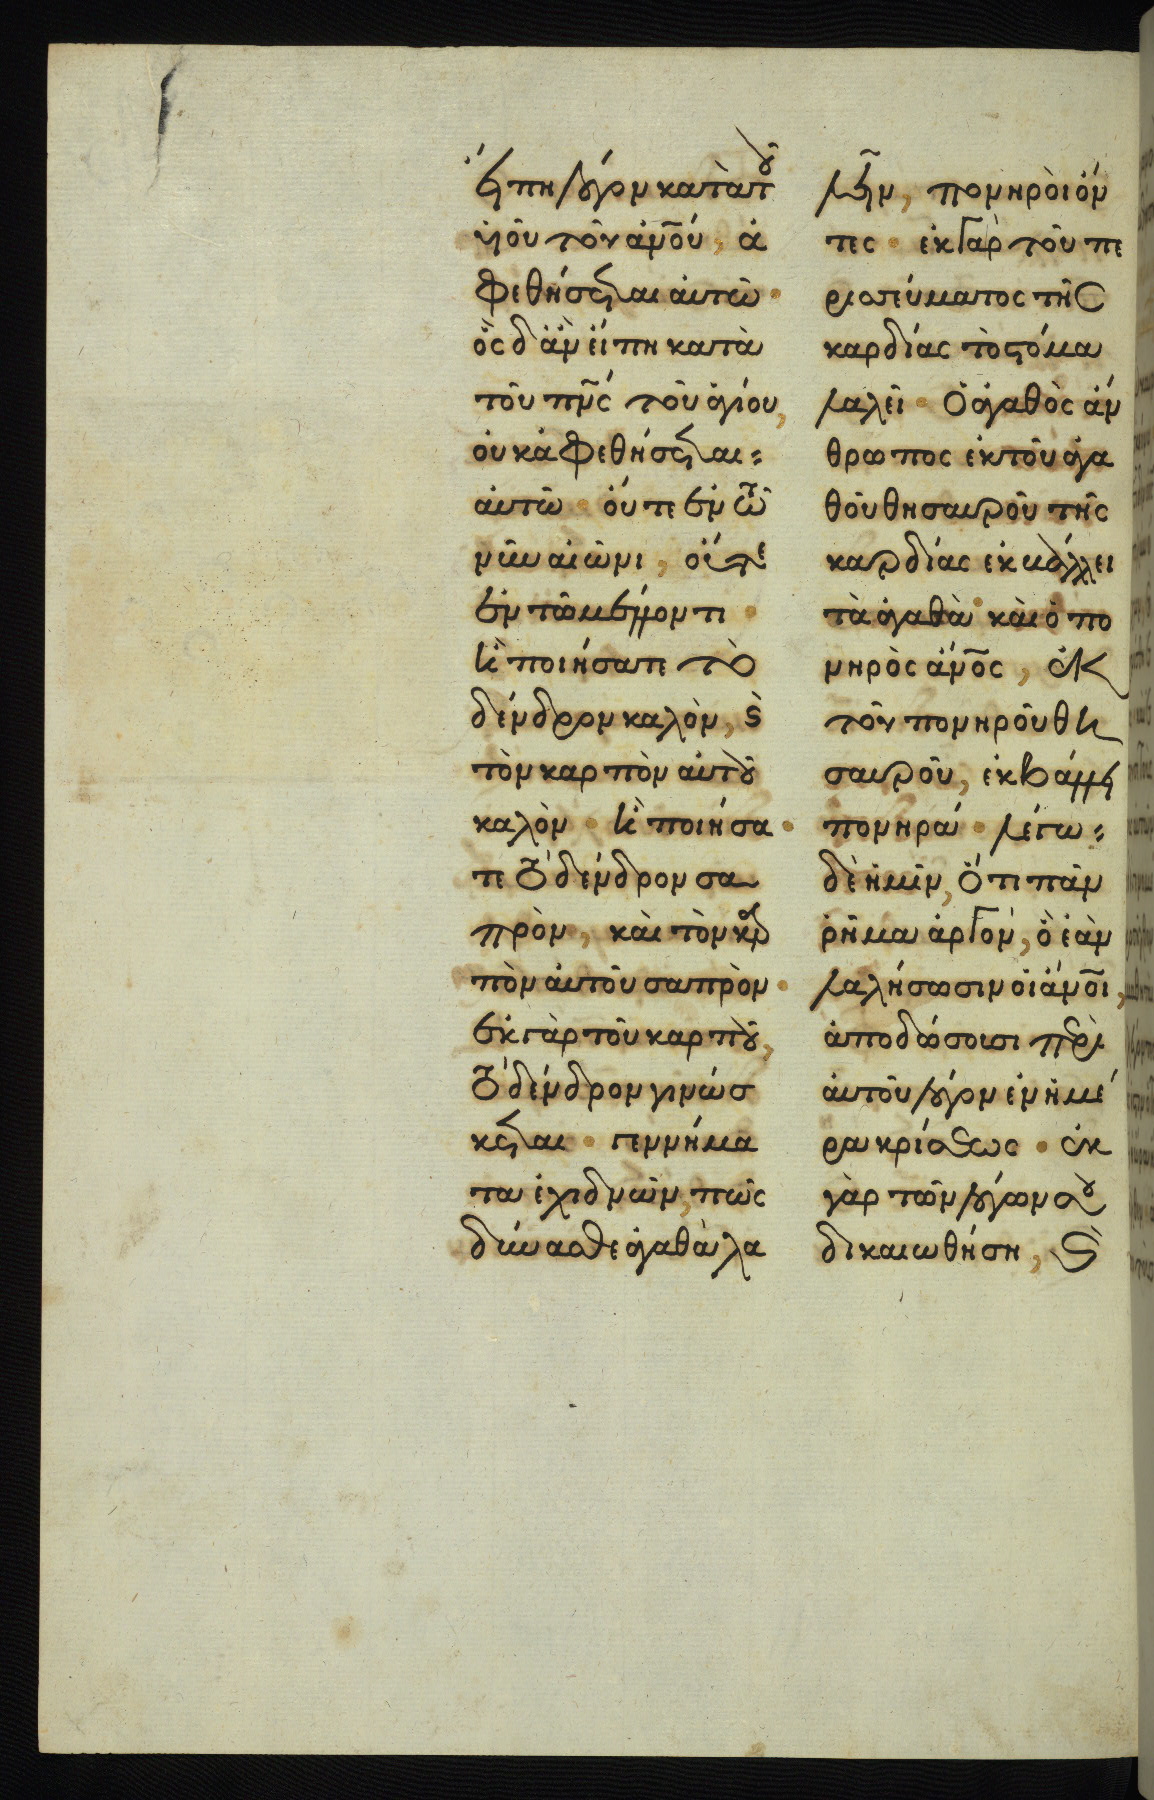 εἴπη λόγον κατὰ τοῦ
υἱοῦ τοῦ ἀν̅ου, ἀ
φεθήσεται αὐτῶ ·
ὃς δ ἂν εἴπη κατὰ
τοῦ πν̅ς τοῦ ἁγίου,
οὐκ ἀφεθήσεται
αὐτῶ · οὔτε ἐν τῶ
νῦν αἰῶνι, οὔτε
ἐν τῶ μέλλοντι ·
ἢ ποιήσατε τὸ
δένδρον καλὸν, ϗ
τὸν καρπὸν αὐτοῦ
καλὸν · ἢ ποιήσα ·
τε τὸ δένδρον σα
πρὸν, καὶ τὸν καρ
πὸν αὐτοῦ σαπρὸν ·
ἐκ γὰρ τοῦ καρποῦ,
τὸ δένδρον γινώσ
κεται · γεννήμα
τα ἐχιδνῶν, πῶς
δύνασθε ἀγαθὰ λα
λεῖν, πονηροὶ ὄν
τες · ἐκ γὰρ τοῦ πε
ρισσεύματος τῆς
καρδίας τὸ στόμα
λαλεῖ · ὁ ἀγαθὸς ἄν
θρωπος ἐκ τοῦ ἀγα
θοῦ θησαυροῦ τῆς
καρδίας ἐκβάλλει
τὰ ἀγαθά · καὶ ὁ πο
νηρὸς ἄν̅ος, ἐκ
τοῦ πονηροῦ θη
σαυροῦ, ἐκβάλλει
πονηρά · λέγω
δὲ ἡμῖν, ὅτι πᾶν
ῥῆμα ἀργὸν, ὃ ἐὰν
λαλήσωσιν οἱ ἄν̅οι,
ἀποδώσουσι περὶ
αὐτοῦ λόγον ἐν ἡμέ
ρα κρίσεως · ἐκ
γὰρ τῶν λόγων σου
δικαιωθήση, ϗ